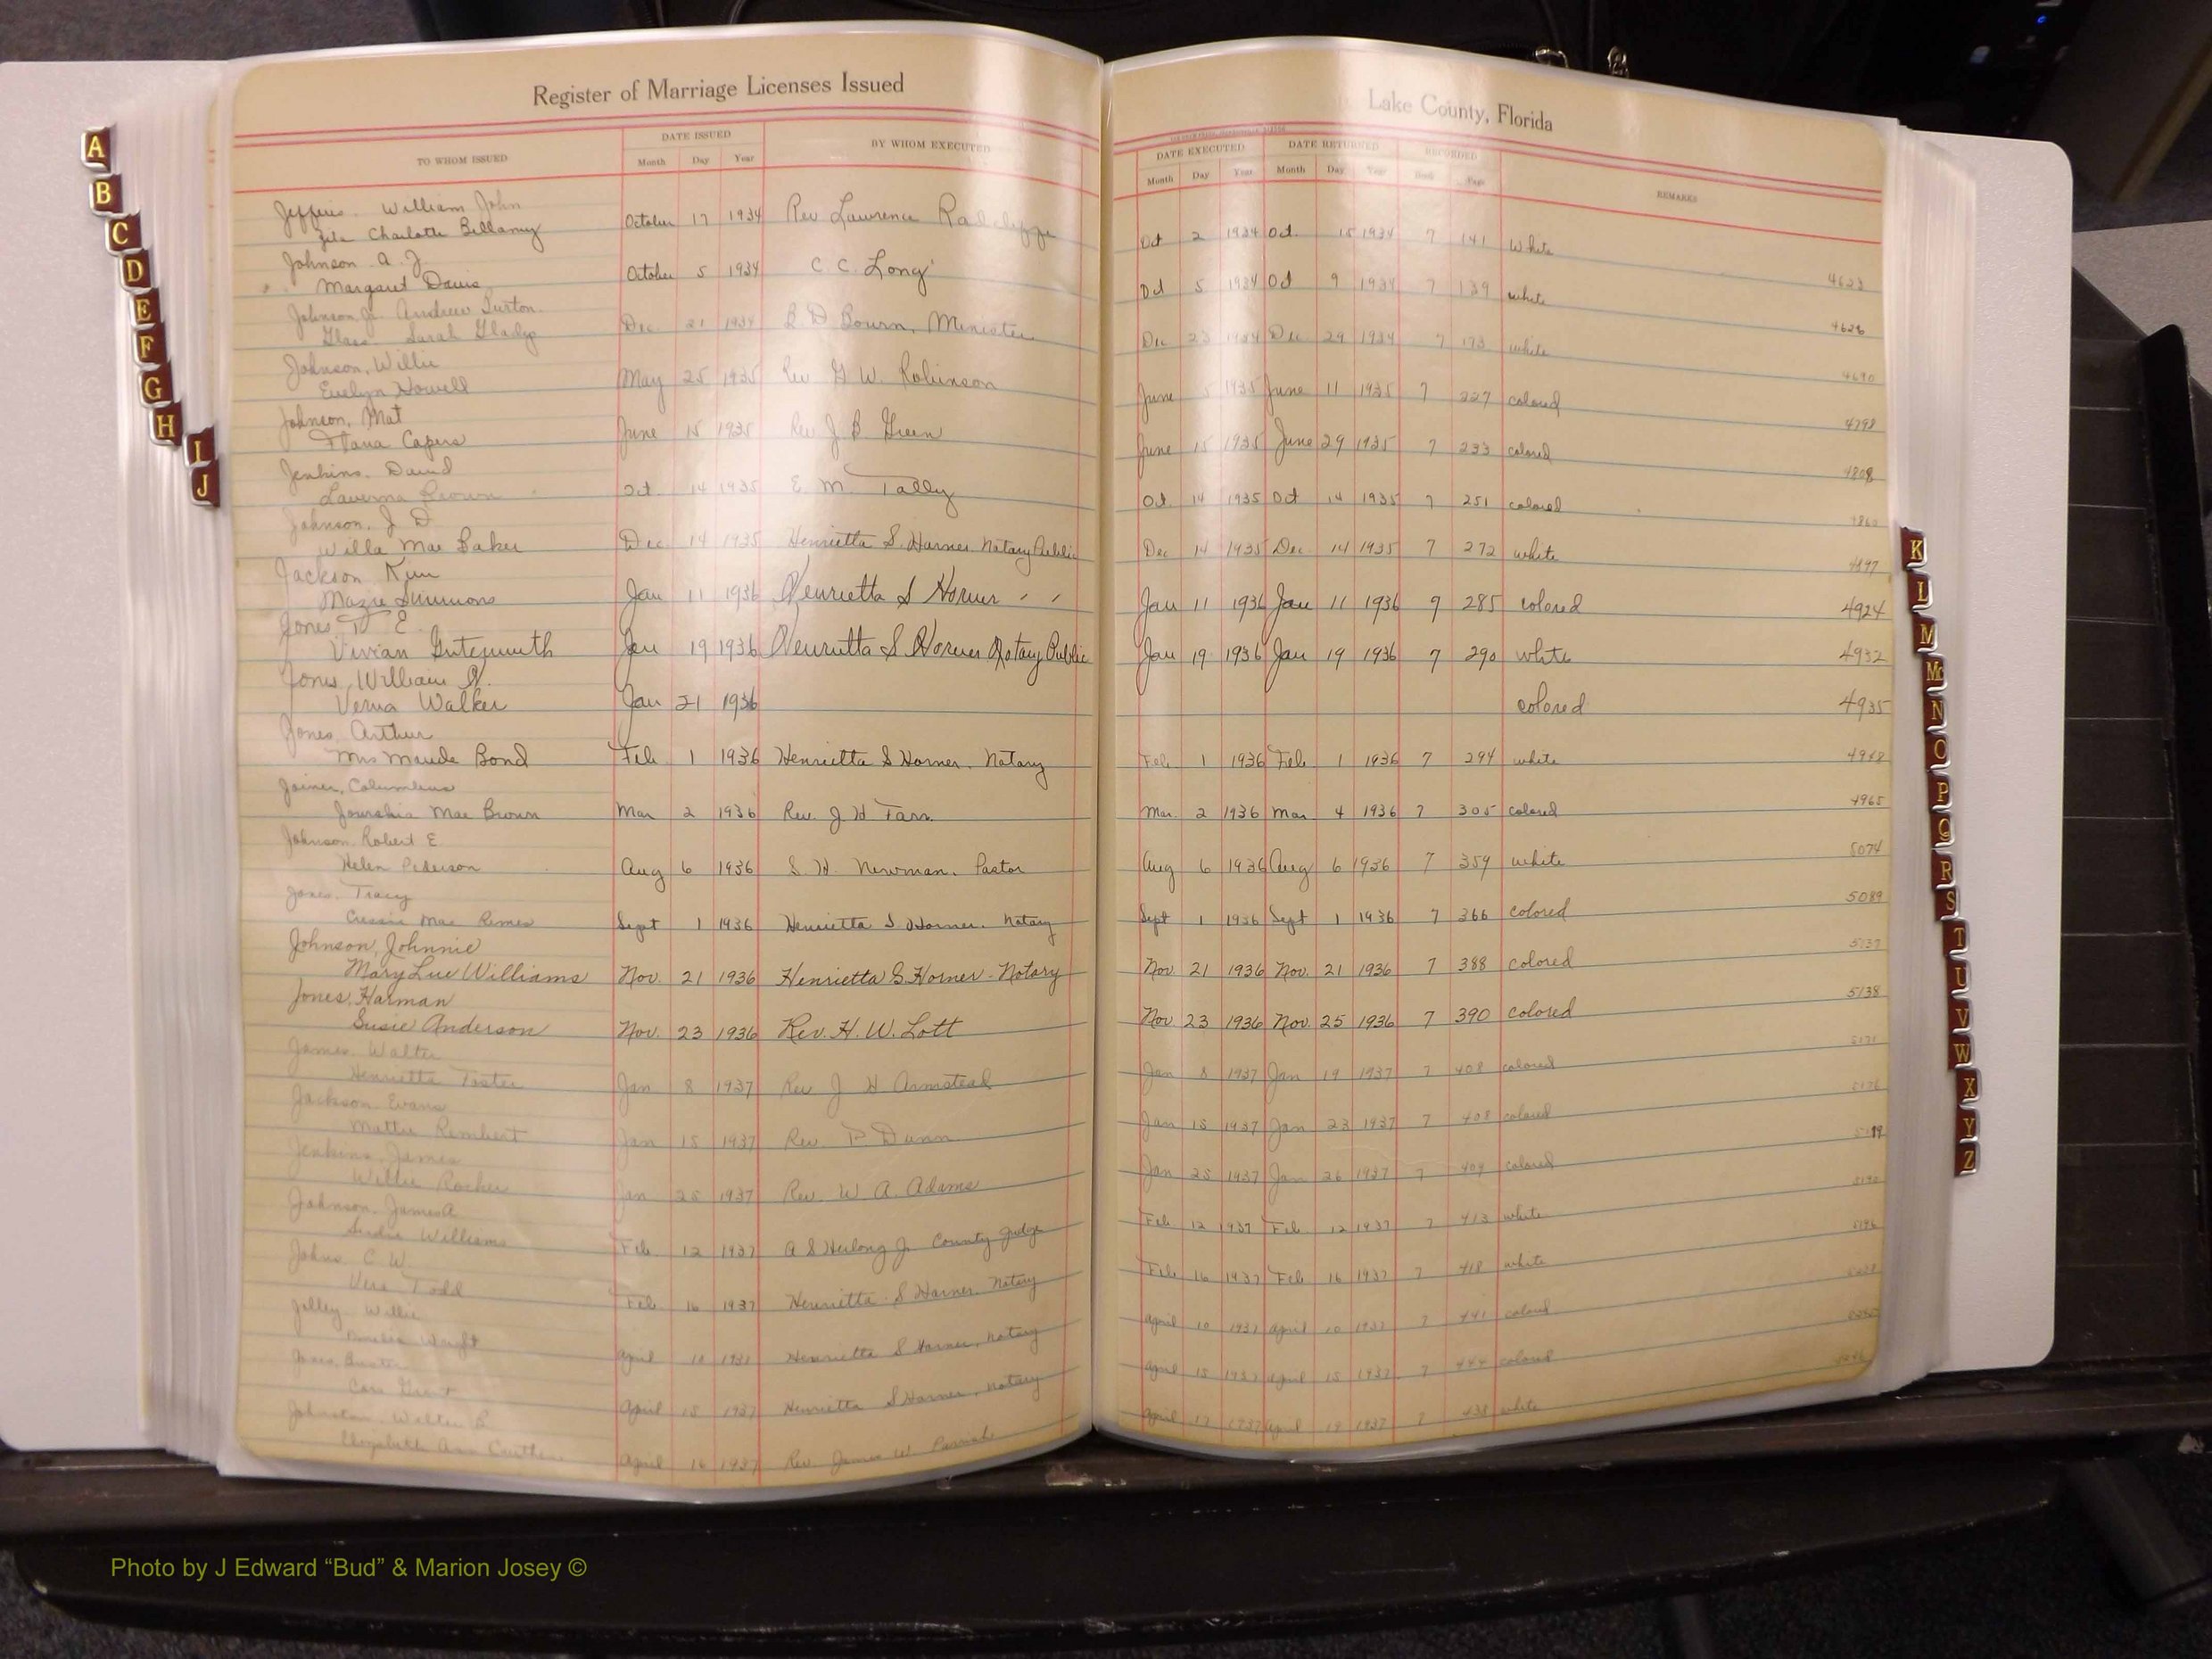 Register of Marriage Licenses Issued
Lake County, Florida
TO WHOM ISSUED
DATE ISSUED
Month Day Year
BY WHOM EXECUTED
DATE EXECUTED
Month Day Year
DATE RETURNED
Month Day Year
RECORDED
Book Page
REMARKS
A
B
C
D
E
F
G
H
I
J
K
L
M
Mc
N
O
P
Q
R
S
T
U
V
W
X
Y
Z
William John
Charlotte Bellamy October 17 1934 Rev Lawrence Oct 2 1934 Oct. 15 1934 7 141 White
Johnson A. J.
Margaret Davis October 5 1934 C. C. Long Oct 5 1934 Oct 9 1934 7 139 white 4623
Johnson Jr Andrew
Glass Sarah Gladys Dec. 21 1934 Bourn, Minister Dec 23 1934 Dec. 29 1934 7 173 white 4626
Johnson, Willie
Evelyn Howell May 25 1935 Rev G. W. Robinson June 5 1935 June 11 1935 7 227 colored 4690
Johnson, Mat
Capers June 15 1935 Rev J B Green June 15 1935 June 29 1935 7 233 colored 4798
Jenkins. David
Laverna Brown Oct. 14 1935 E. M. Tally Oct. 14 1935 Oct 14 1935 7 251 colored 4808
Johnson, J D
Willa Mae Baker Dec. 14 1935 Henrietta S. Horner Notary Public Dec 14 1935 Dec. 14 1935 7 272 white
Jackson
Mazie Simmons Jan 11 1936 Henrietta S Horner " " Jan 11 1936 Jan 11 1936 9 285 colored 4897
4924
Jones E
Vivian Jan 19 1936 Henrietta S Horner Notary Public Jan 19 1936 Jan 19 1936 7 290 white 4932
Jones, William
Verna Walker Jan 21 1936 colored 4935
Jones, Arthur
Mrs Maude Bond Feb 1 1936 Henrietta S Horner, Notary Feb. 1 1936 Feb. 1 1936 7 294 white 4948
Joiner, Columbus
Mae Brown Mar 2 1936 Rev. J H Farr Mar. 2 1936 Mar 4 1936 7 305 colored 4965
Johnson Robert E
Helen Pederson Aug 6 1936 S. H. Newman, Pastor Aug 6 1936 Aug 6 1936 7 359 white 5074
Jones, Tracy
Mae Sept 1 1936 Henrietta S Horner, Notary Sept 1 1936 Sept 1 1936 7 366 colored 5089
Johnson, Johnnie
Mary Lue Williams Nov. 21 1936 Henrietta S. Horner - Notary Nov. 21 1936 Nov. 21 1936 7 388 colored 5137
Jones, Harman
Susie Anderson Nov. 23 1936 Rev. H. W. Lott Nov 23 1936 Nov. 25 1936 7 390 colored 5138
James, Walter
Henrietta Jan 8 1937 Rev J H Armstead Jan 8 1937 Jan 19 1937 7 408 colored
Jackson Evans
Mattie Rembert Jan 15 1937 Rev. P. Dunn Jan 15 1937 Jan 23 1937 7 408 colored
Jenkins, James
Willie Jan 25 1937 Rev. W A. Adams Jan 25 1937 Jan 26 1937 7 409 colored
Johnson, James A
Williams Feb 12 1937 County Judge Feb 12 1937 Feb. 12 1937 7 413 white
Johns, C. W.
Vera Todd Feb. 16 1937 Henrietta S Horner, Notary Feb. 16 1937 Feb 16 1937 7 418 white
Jolley Willie
Wright April 10 1937 Henrietta S Horner, Notary April 10 1937 April 10 1937 7 441 colored
Jones,
Cora April 15 1937 Henrietta S Horner, Notary April 15 1937 April 15 1937 7 444 colored
Johnston, Walter
Elizabeth Ann April 16 1937 Rev. James W. April 17 1937 April 19 1937 7 438 white
Photo by J Edward “Bud” & Marion Josey ©